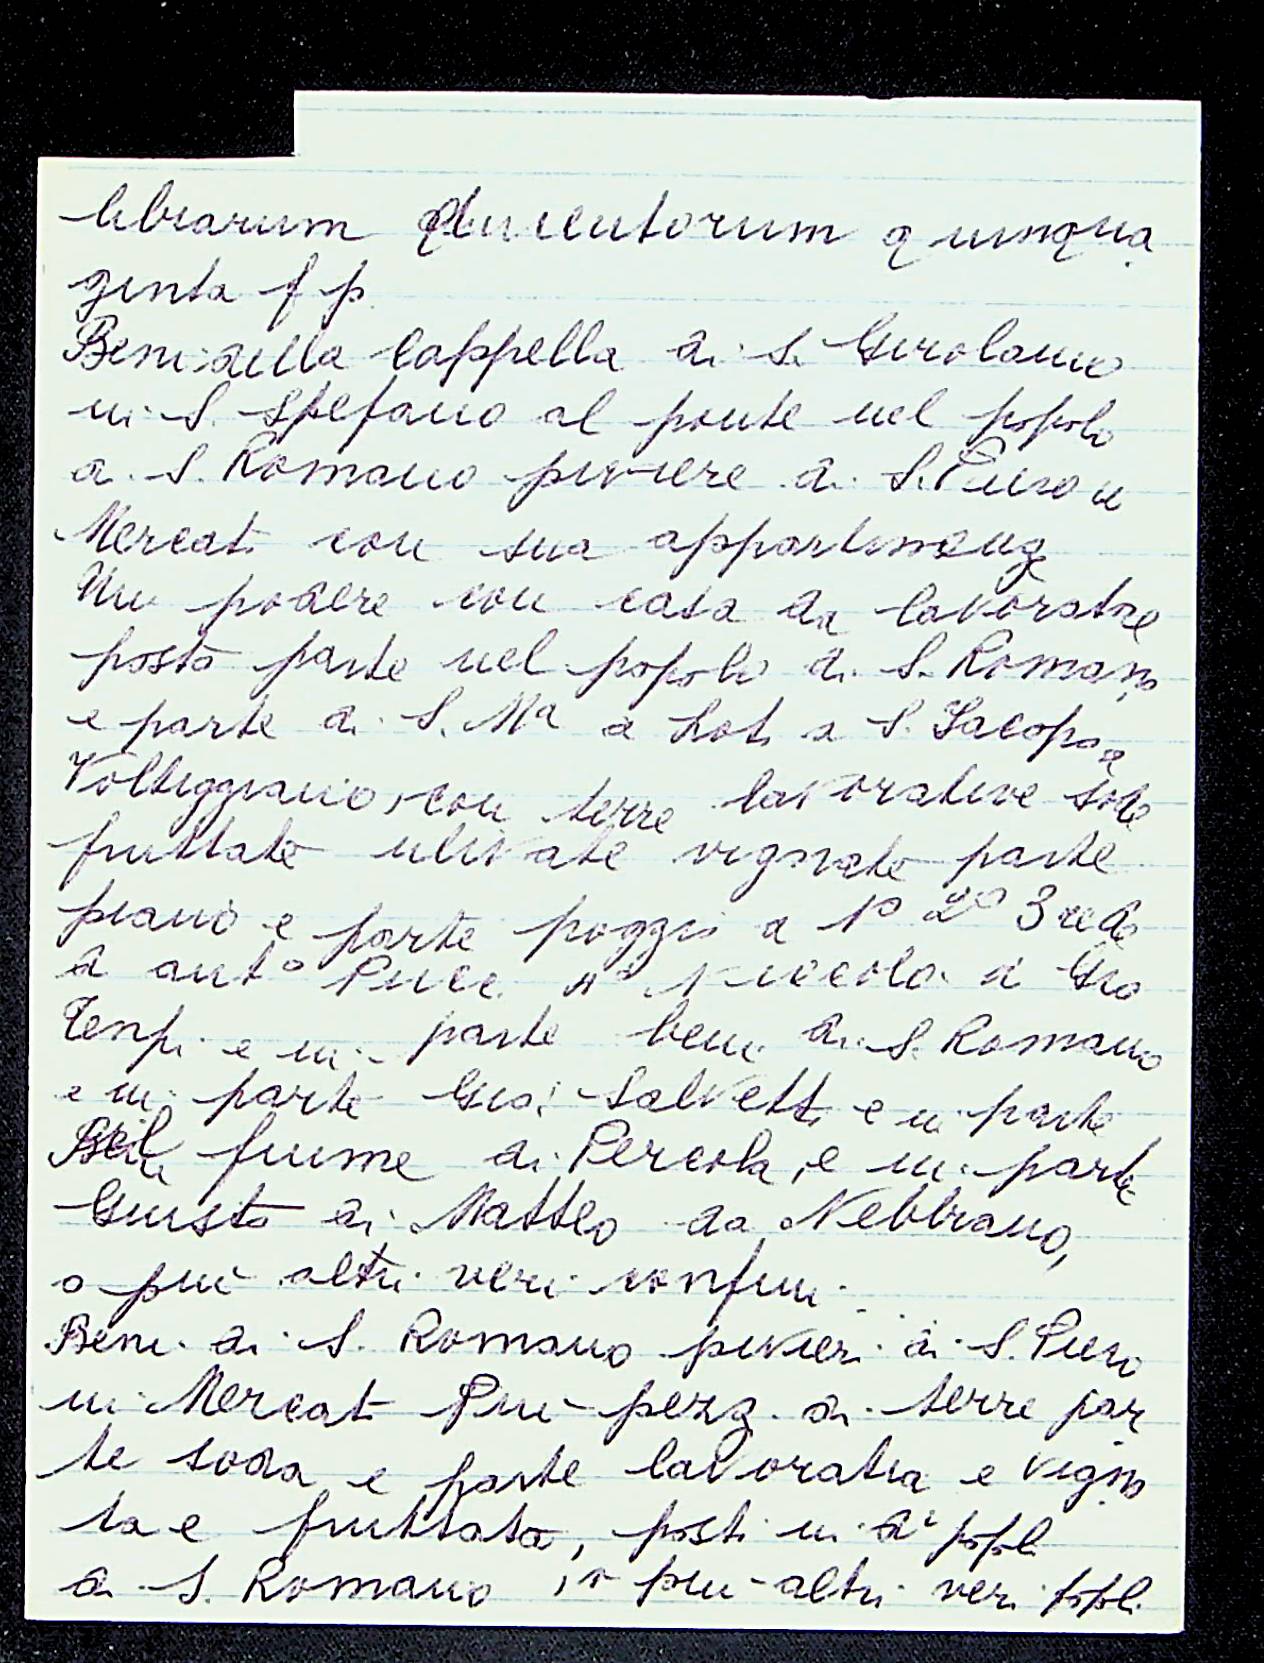 librarum ducentorum quinqua
ginta f p.
Beni della Cappella di S. Girolamo
in S. Stefano al ponte nel popolo
di S. Romano piviere di S. Piero in
Mercato con sua appartenenz
Un podere con casa da lavoratore
posto parte nel popolo di S. Romano
e parte di S. Ma a S. Jacopo a
Voltiggiano, con terre lavorative sode
fruttate ulivate vignate parte
piano e parte poggio a 1º 2º 3 rede
di anto Pucci 4º Niccolo di Gio
Tenpi e in parte beni di S. Romano
e in parte Gio: Salvetti e in parte
fiume di Percola, e in parte
Giusto di Matteo da Nebbiano,
o piu altri veri confini.
Beni di S. Romano pivieri di S. Piero
in Mercato Piu pezzi di terre par
te soda e parte lavoratia e vigna
ta e fruttata, posti in do popoli
di S. Romano, o piu altri veri popoli